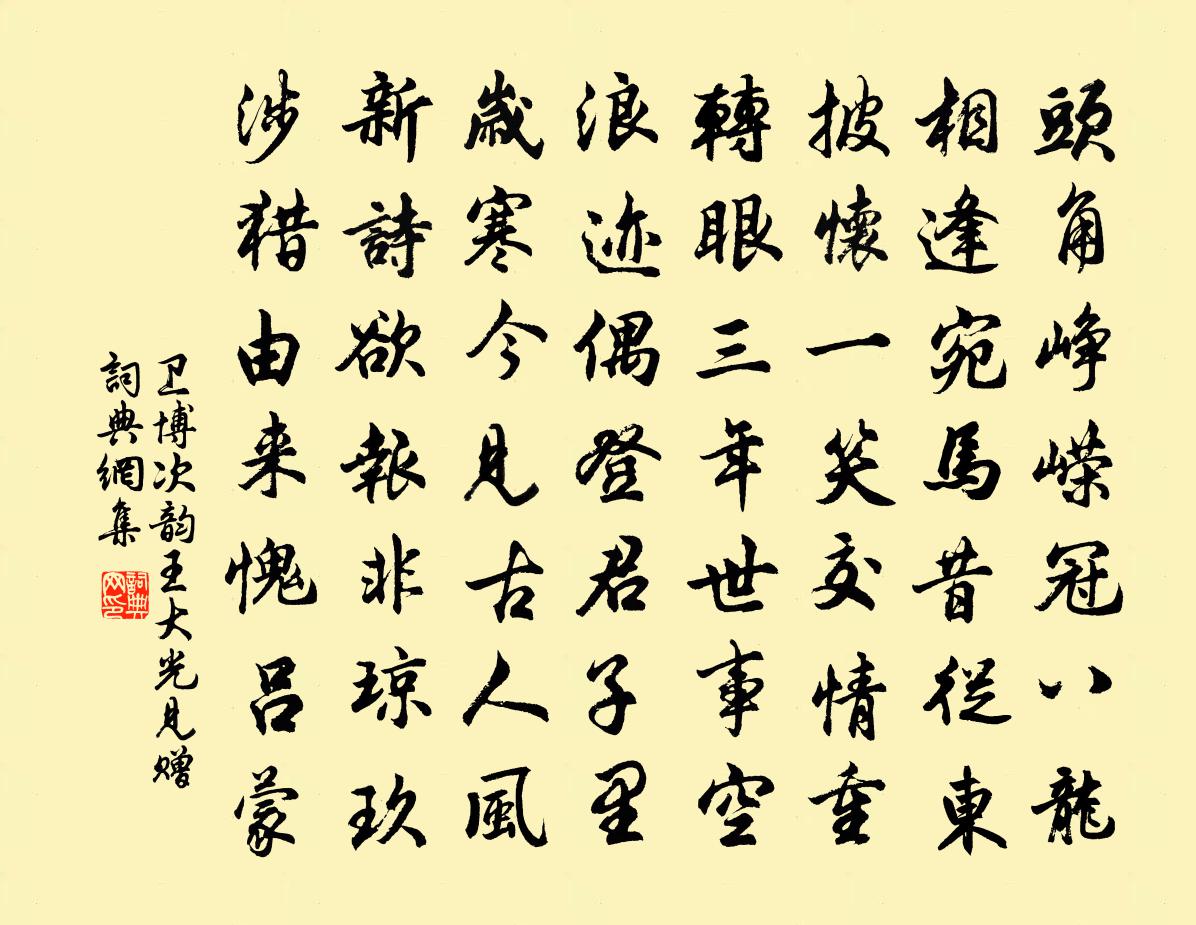 頭角崢嶸冠八龍
相逢宛馬昔從東
披懷一笑交情重
轉眼三年世事空
浪迹偶登君子里
歲寒今見古人風
新詩欲報非琼玖
涉猎由来愧呂蒙
卫博次韵王大光見赠
詞典網集
詞典网印